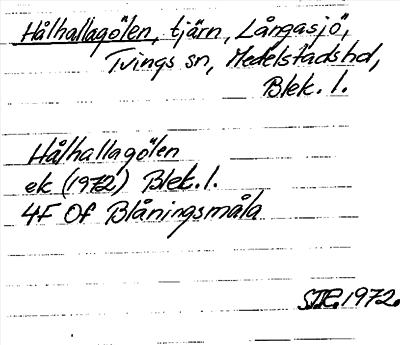 Hålhallagölen, tjärn, Långasjö,
Tvings sn, Medelstadshd,
Blek. l.
Hålhallagölen
ek (1972) Blek. l.
4F Of Blåningsmåla
1972.